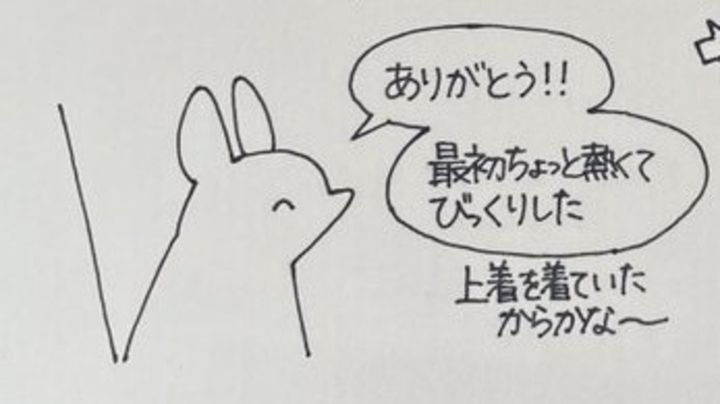 ありがとう!!
最初ちょっと熱くて
びっくりした
上着を着ていた
からかな〜